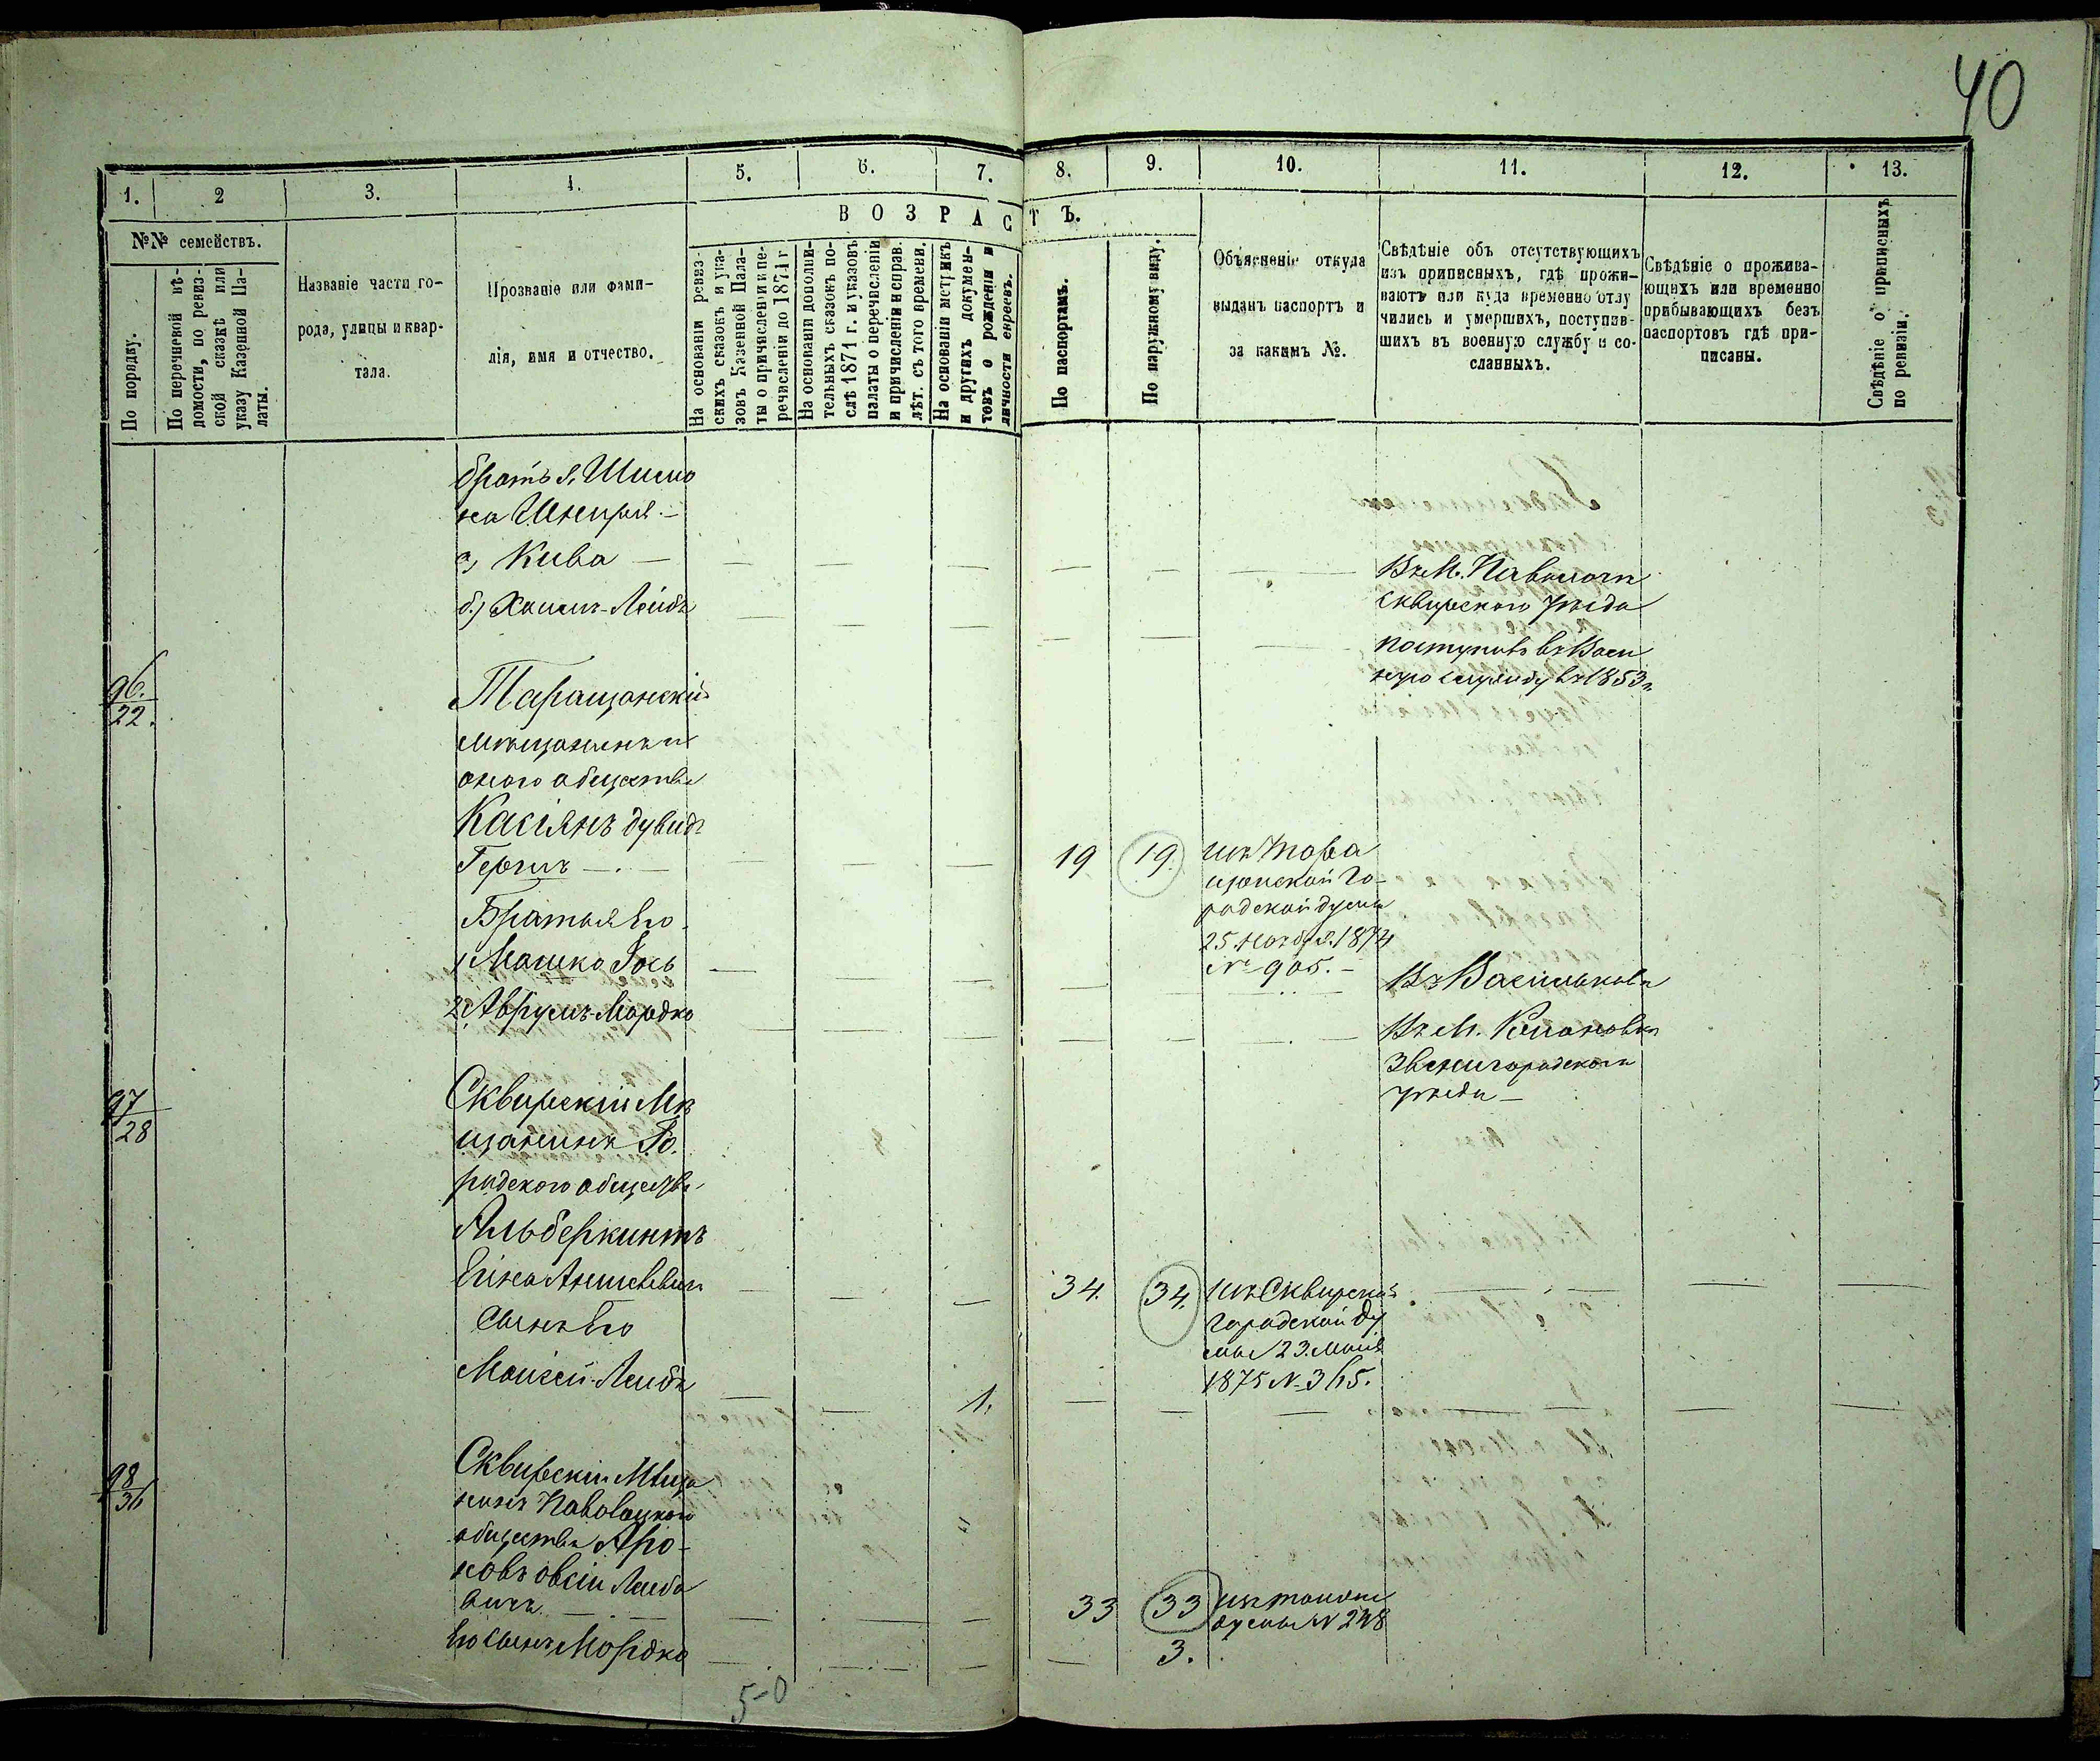 40
1. 2 3. 4. 5. 6. 7. 8. 9. 10. 11. 12. 13.
ВОЗРАСТЪ.
№№ семействъ.
По порядку.
По перечневой вѣ-
домости, по ревиз-
ской сказкѣ или
указу Казенной Па-
латы.
Названіе части го-
рода, улицы и квар-
тала.
Прозваніе или фами-
лія, имя и отчество.
На основаніи ревиз-
скихъ сказокъ и ука-
зовъ Казенной Пала-
ты о причисленіи и пе-
речисленіи до 1874 г.
На основаніи дополни-
тельныхъ сказокъ по-
слѣ 1871 г. и указовъ
палаты о перечисленіи
и причисленіи и справ.
лѣт. съ того времени.
На основаніи метрикъ
и другихъ докумен-
товъ о рожденіи и
личности евреевъ.
По паспортамъ.
По наружному виду.
Объясненіе откуда
выданъ паспортъ и
за какимъ №.
Свѣдѣніе объ отсутствующихъ
изъ приписныхъ, гдѣ прожи-
ваютъ или куда временно отлу
чились и умершихъ, поступив-
шихъ въ военную службу и со-
сланныхъ.
Свѣдѣніе о прожива-
ющихъ или временно
прибывающихъ безъ
паспортовъ гдѣ при-
писаны.
Свѣдѣніе о приписныхъ
по ревизіи.
братъ
а) Кива
Въ М. Паволочи
Сквирскаго уѣзда
б.) Хаимъ-Лейбъ
поступилъ въ Воен
ную службу въ 1853 г.
96.
22.
Таращанскій
мѣщанинъ
онаго общества
Касіянъ Дувидъ
Гершъ
19 19. изъ Тара
щанской Го-
родской думы
25 Ноября 1874
№ 905.
Братья Его
1, Мошко Іось
Въ Василькове
2, Аврумъ-Мордко
Въ М.
Звенигородскаго
уѣзда
97
28
Сквирскій Мѣ
щанинъ Го
родского общества
Альберкинтъ
34. 34. изъ Сквирской
Городской Ду
мы 23.
1875 №
Сынъ Его
Моисей-Лейбъ
1.
98
Сквирскій Мѣща
нинъ Паволоцкого
общества Аро-
новъ Овсій Лейбо
вичъ
33 33
думы №
Его сынъ Мордко
3.
50